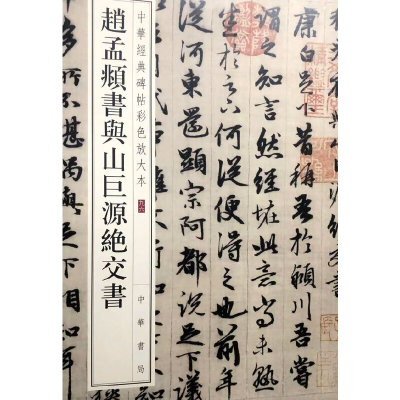 中華經典碑帖彩色放大本
趙孟頫書與山巨源絶交書
中華書局
康白足下昔稱吾於潁川吾嘗
謂之知言然經怪此意尚未熟
悉於足下何從便得之也前年
從河東還顯宗阿都說足下議